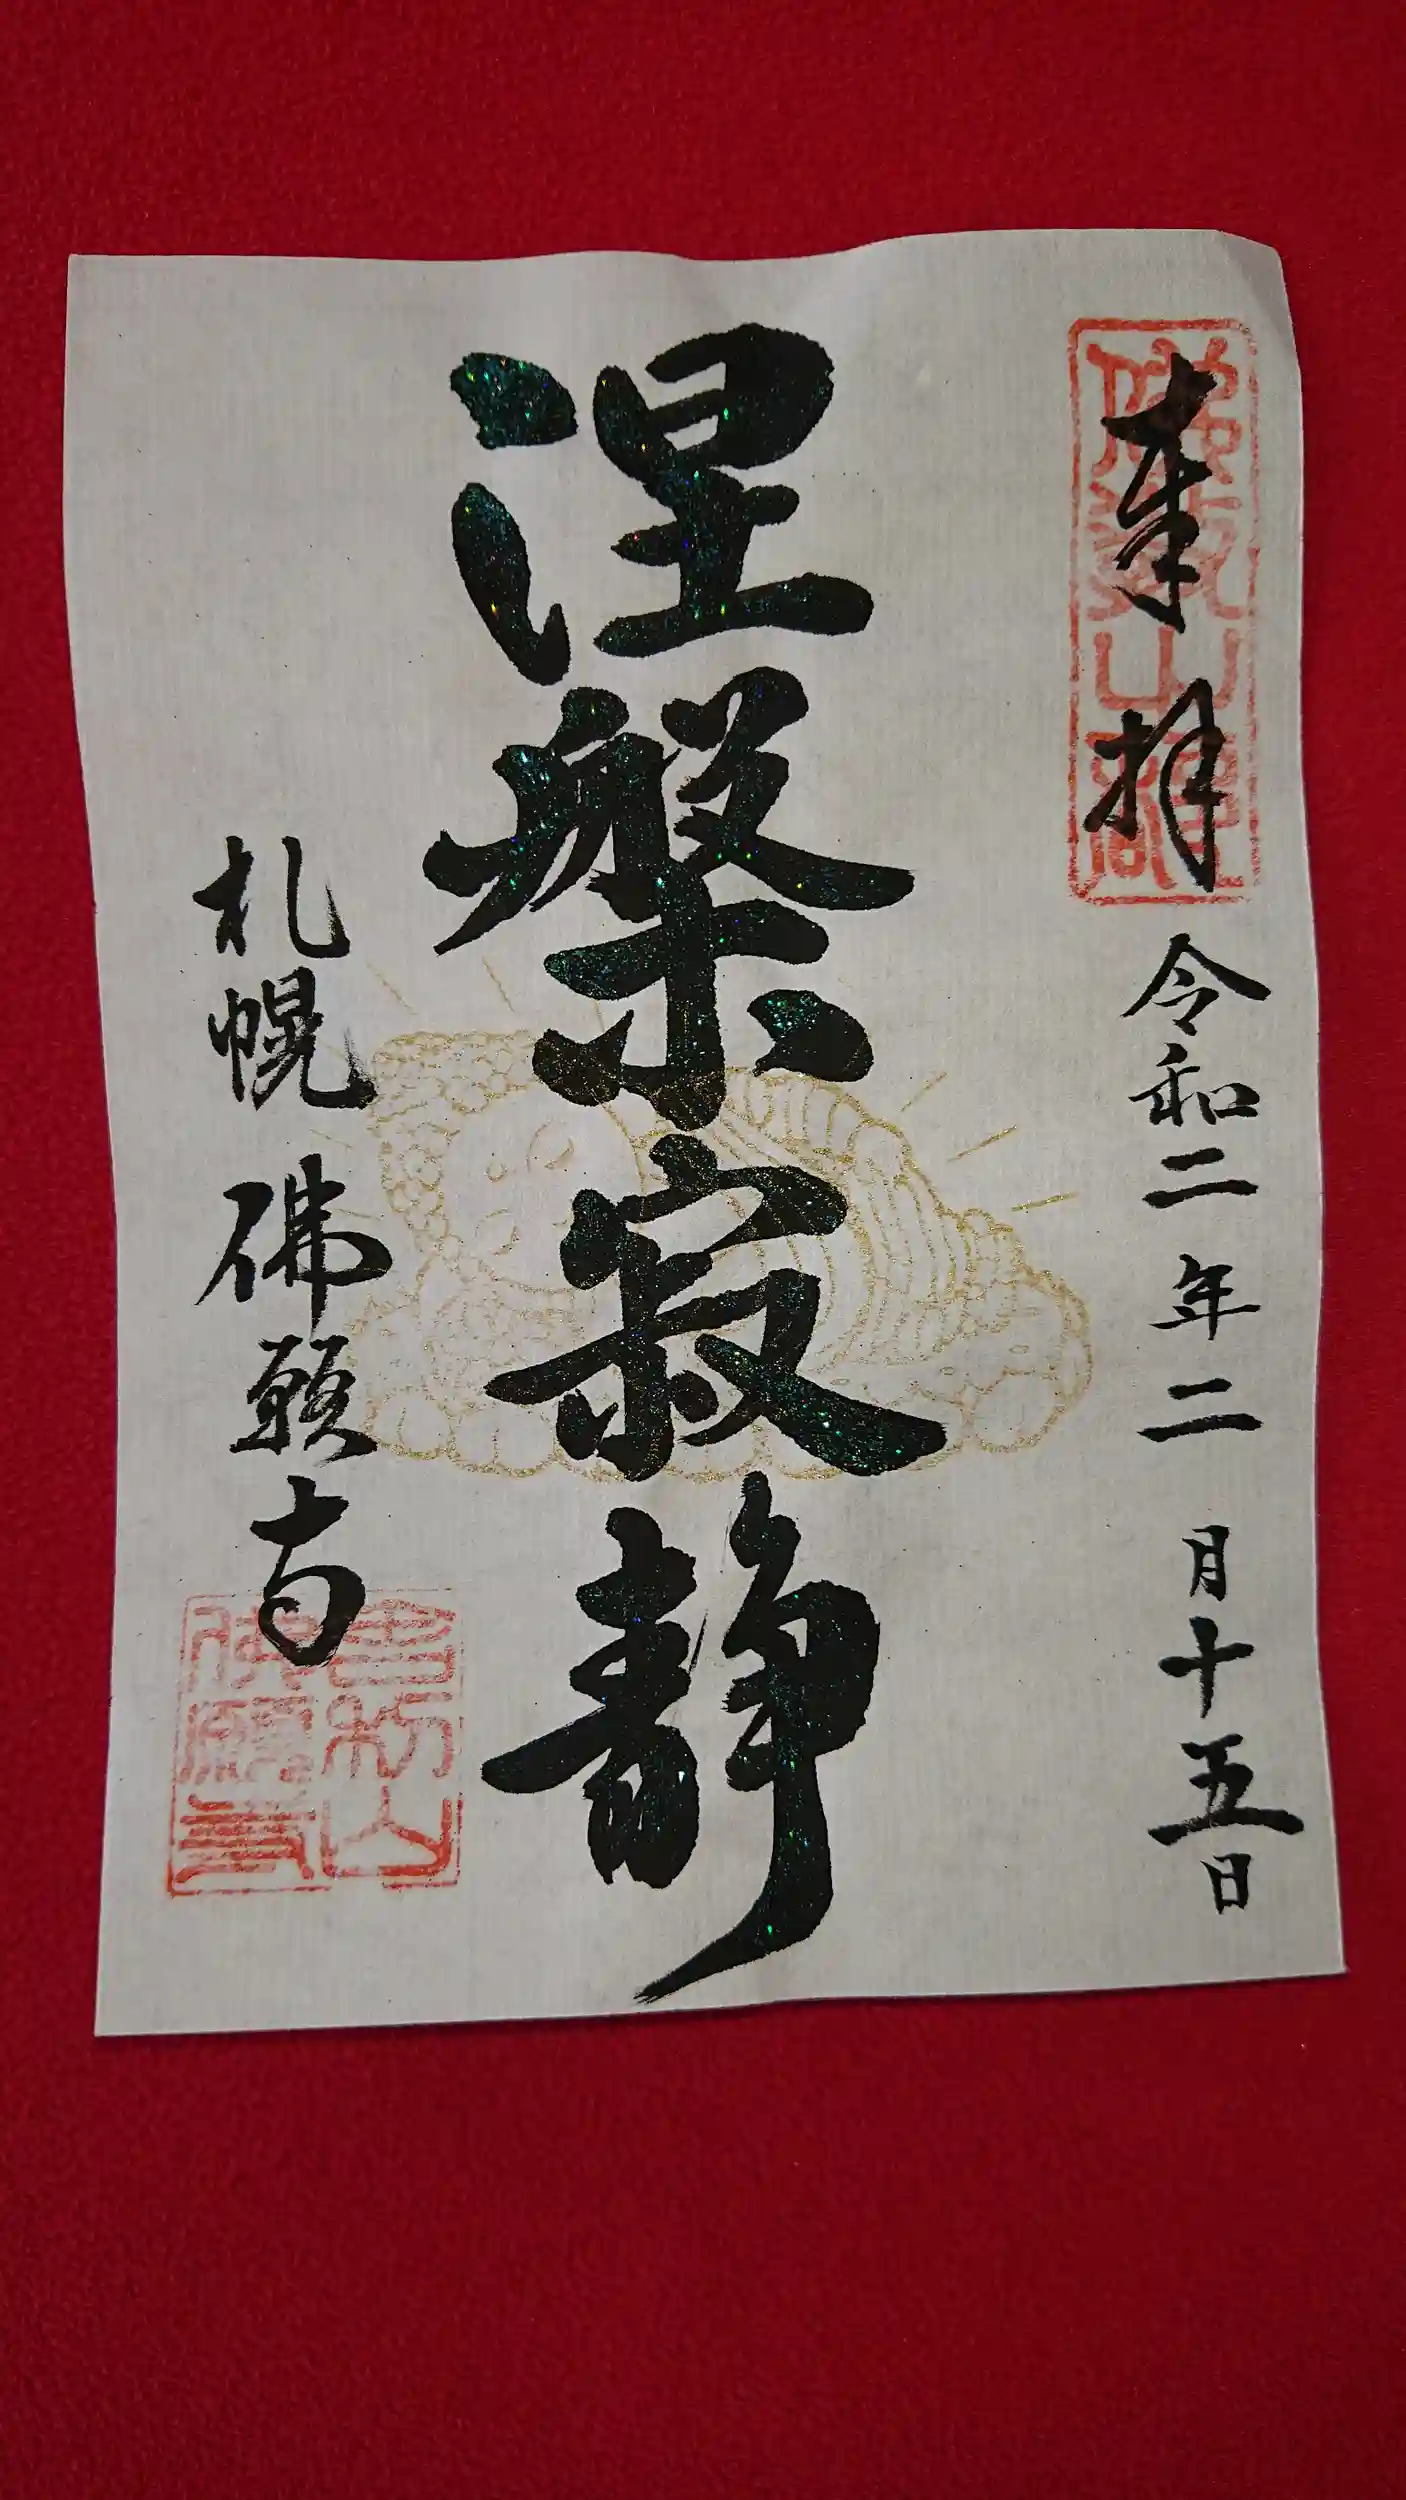 奉拝
令和二年二月十五日
涅槃寂静
札幌佛願寺